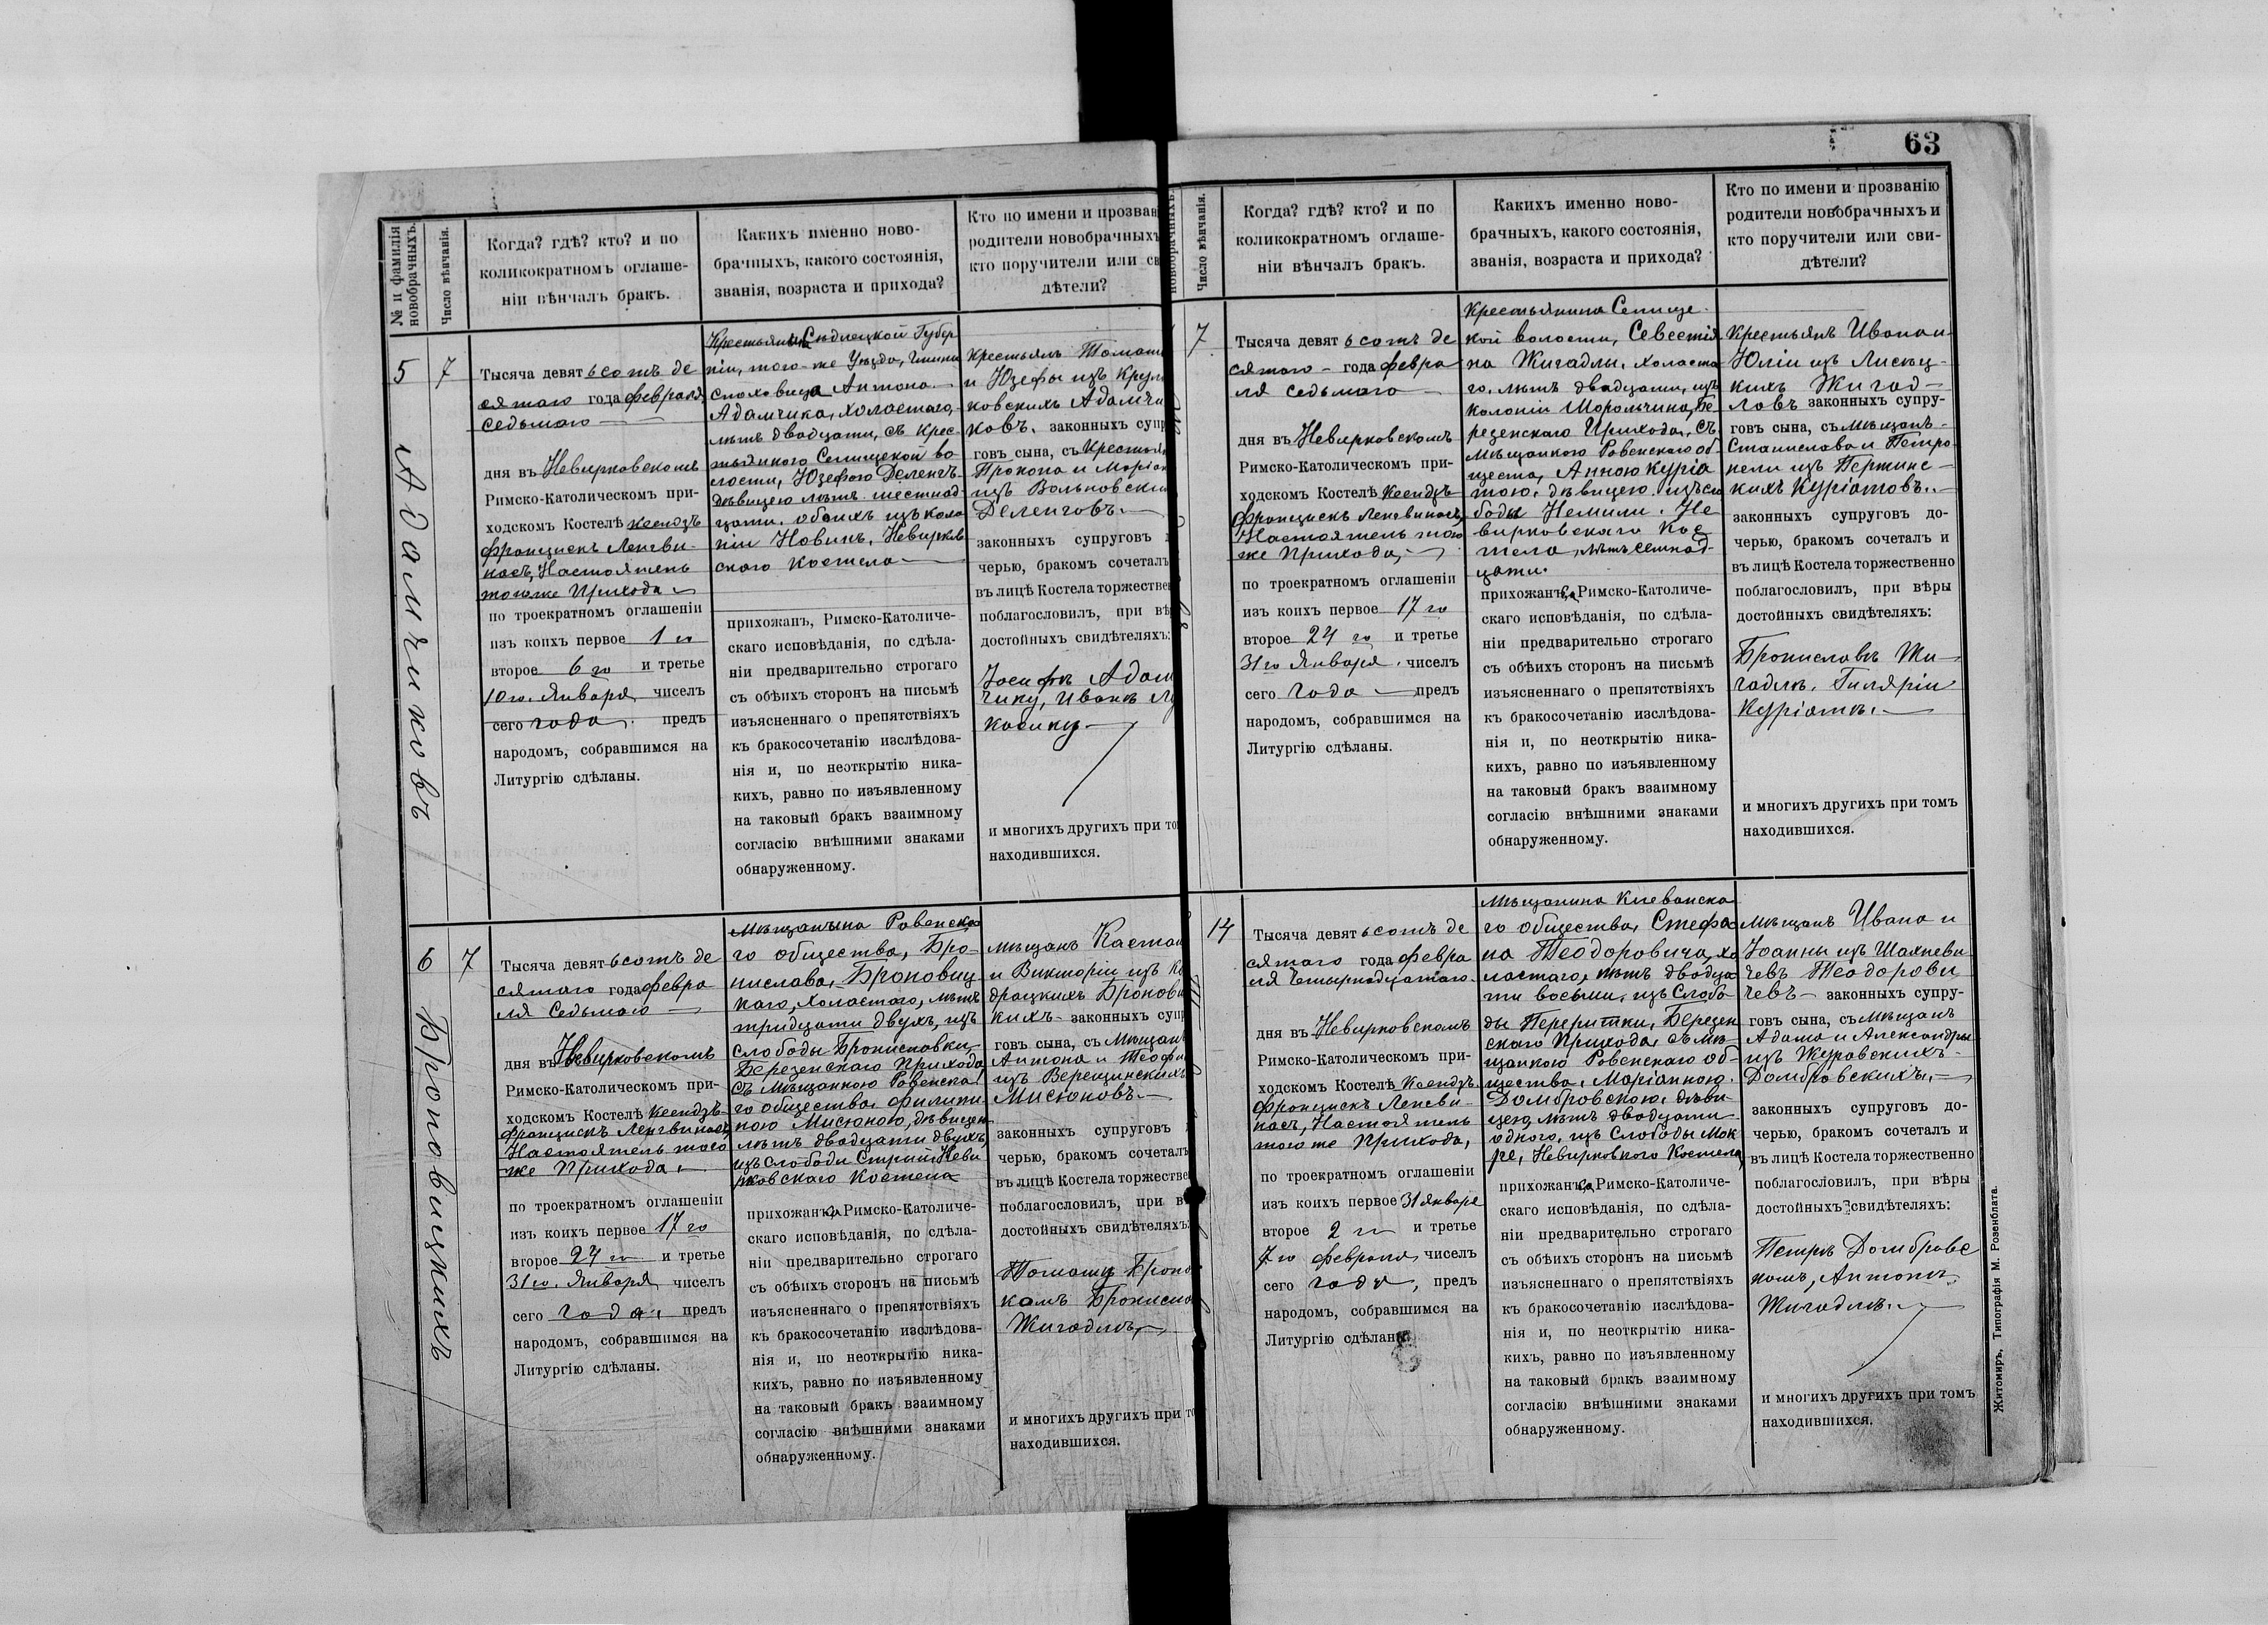 № и фамилія новобрачныхъ.
Число вѣнчанія.
Когда? гдѣ? кто? и по
коликократномъ оглаше-
ніи вѣнчалъ бракъ.
Какихъ именно ново-
брачныхъ, какого состоянія,
званія, возраста и прихода?
Кто по имени и прозван
родители новобрачныхъ
кто поручители или св
дѣтели?
5
7
Адамчиковъ
Тысяча девятьсотъ де
сятаго года февраля
седьмаго
дня въ Невирковскомъ
Римско-Католическомъ при-
ходскомъ Костелѣ Ксендзъ
Францискъ
Настоятель
тогоже Прихода
по троекратномъ оглашеніи
изъ коихъ первое 1 го
второе 6 го и третье
10 го Января чиселъ
сего года предъ
народомъ, собравшимся на
Литургію сдѣланы.
Сѣдлецкой Губер
ніи, того-же Уѣзда,
Антона
Адамчика, холостаго,
лѣтъ двадцати, съ крес-
тьянкою Селищской во-
лости, Юзефою Деленгъ
дѣвицею лѣтъ шестнад-
цати, обоихъ изъ коло
ніи Новинъ, Невирков
скаго костела
прихожан, Римско-Католиче-
скаго исповѣданія, по сдѣла-
ніи предварительно строгаго
съ обѣихъ сторонъ на письмѣ
изъясненнаго о препятствіяхъ
къ бракосочетанію изслѣдова-
нія и, по неоткрытію ника-
кихъ, равно по изъявленному
на таковый бракъ взаимному
согласію внѣшними знаками
обнаруженному.
Крестьянъ
и Юзефы изъ
ковскихъ Адамчи
ковъ, законныхъ супр
говъ сына, съ Крестьян
Прокопа и Маріан
изъ
Деленговъ.
законныхъ супруговъ
черью, бракомъ сочеталъ
въ лицѣ Костела торжествен
поблагословилъ, при вѣ
достойныхъ свидѣтеляхъ:
Адам
чику, Иванъ
и многихъ другихъ при то
находившихся.
6
7
Броповицкихъ
Тысяча девятьсотъ де
сятаго года февра
ля седьмаго
дня въ Невирковскомъ
Римско-Католическомъ при-
ходскомъ Костелѣ Ксендзъ
Францискъ
Настоятель того
же Прихода
по троекратномъ оглашеніи
изъ коихъ первое 17 го
второе 24 го и третье
31 го Января чиселъ
сего года, предъ
народомъ, собравшимся на
Литургію сдѣланы.
Мѣщанина Ровенска
го общества, Бро-
нислава
холостаго, лѣтъ
тридцати двухъ, изъ
слободы Брониславки,
Березенскаго Прихода,
съ Мѣщанкою Ровенска
го общества
Мисюною, дѣвицею
лѣтъ двадцати двухъ,
изъ слободы Невир
ковскаго Костела
прихожан, Римско-Католиче-
скаго исповѣданія, по сдѣла-
ніи предварительно строгаго
съ обѣихъ сторонъ на письмѣ
изъясненнаго о препятствіяхъ
къ бракосочетанію изслѣдова-
нія и, по неоткрытію ника-
кихъ, равно по изъявленному
на таковый бракъ взаимному
согласію внѣшними знаками
обнаруженному.
мѣщанъ
и Викторіи изъ
кихъ законныхъ супр
говъ сына, съ Мѣщан
Антона и
изъ Верещинскихъ
Мисюновъ.
законныхъ супруговъ
черью, бракомъ сочеталъ
въ лицѣ Костела торжестве
поблагословилъ, при в
достойныхъ свидѣтеляхъ
Жигадлъ
и многихъ другихъ при то
находившихся.
63
новобрачныхъ.
Число вѣнчанія.
Когда? гдѣ? кто? и по
коликократномъ оглаше-
ніи вѣнчалъ бракъ.
Какихъ именно ново-
брачныхъ, какого состоянія,
званія, возраста и прихода?
Кто по имени и прозванію
родители новобрачныхъ и
кто поручители или сви-
дѣтели?
7
Тысяча девятьсотъ де
сятаго года февра
ля седьмаго
дня въ Невирковскомъ
Римско-Католическомъ при-
ходскомъ Костелѣ Ксендзъ
Францискъ
Настоятель того
же Прихода,
по троекратномъ оглашеніи
изъ коихъ первое 17 го
второе 24 го и третье
31 го Января чиселъ
сего года предъ
народомъ, собравшимся на
Литургію сдѣланы.
Крестьянина Селище
кой волости,
на Жигадлы, холоста
го, лѣтъ двадцати, изъ
колоніи Бе
резенскаго Прихода, съ
Мѣщанкою Ровенскаго об-
щества, Анною Куріа
тою, дѣвицею изъ сло
боды Немили, Не
вирковскаго Кос
тела, лѣтъ семнад-
цати.
прихожан, Римско-Католиче-
скаго исповѣданія, по сдѣла-
ніи предварительно строгаго
съ обѣихъ сторонъ на письмѣ
изъясненнаго о препятствіяхъ
къ бракосочетанію изслѣдова-
нія и, по неоткрытію ника-
кихъ, равно по изъявленному
на таковый бракъ взаимному
согласію внѣшними знаками
обнаруженному.
Крестьянъ Ивана и
Юліи изъ Лисец-
кихъ Жигад-
ловъ законныхъ супру-
говъ сына, съ Мѣщанъ
Станислава и Петро
нели изъ
кихъ Куріатовъ.
законныхъ супруговъ до-
черью, бракомъ сочеталъ и
въ лицѣ Костела торжественно
поблагословилъ, при вѣры
достойныхъ свидѣтеляхъ:
Брониславъ Жи-
гадлъ, Гиляріи
Куріатъ.
и многихъ другихъ при томъ
находившихся.
14
Тысяча девятьсотъ де
сятаго года февра
ля четырнадцатаго
дня въ Невирковскомъ
Римско-Католическомъ при-
ходскомъ Костелѣ Ксендзъ
Францискъ
Настоятель
того же Прихода,
по троекратномъ оглашеніи
изъ коихъ первое 31 Января
второе 2 го и третье
7 го февраля чиселъ
сего года, предъ
народомъ, собравшимся на
Литургію сдѣланы.
Мѣщанина Клеванска
го общества, Стефа
на Теодоровича, хо
лостаго, лѣтъ двадца
ти восьми, изъ Слобо
ды Березен
скаго Прихода, съ Мѣ
щанкою Ровенскаго об-
щества, Маріанною
Домбровскою, дѣви
цею, лѣтъ двадцати
одного, изъ Слободы Мок
ре, Невирковского Костела
прихожан, Римско-Католиче-
скаго исповѣданія, по сдѣла-
ніи предварительно строгаго
съ обѣихъ сторонъ на письмѣ
изъясненнаго о препятствіяхъ
къ бракосочетанію изслѣдова-
нія и, по неоткрытію ника-
кихъ, равно по изъявленному
на таковый бракъ взаимному
согласію внѣшними знаками
обнаруженному.
мѣщанъ Ивана и
Іоанны изъ
чевъ Теодорови
чевъ законныхъ супру-
говъ сына, съ Мѣщанъ
Адама и Александры
изъ Журовскихъ
Домбровскихъ.
законныхъ супруговъ до-
черью, бракомъ сочеталъ и
въ лицѣ Костела торжественно
поблагословилъ, при вѣры
достойныхъ свидѣтеляхъ:
Петръ Домбровс
комъ, Антонъ
Жигадлъ.
и многихъ другихъ при томъ
находившихся.
Житомиръ, Типографія М. Розенблата.